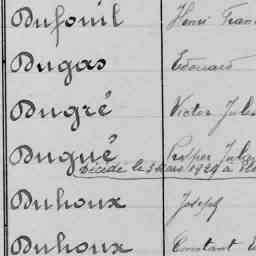 Dufouil Henri Fran
Dugas Edouard
Dugré Victor Jules
Dugué Prosper Jules
Décédé le 3 Mars 1929 à
Duhoux Joseph
Duhoux Constant E